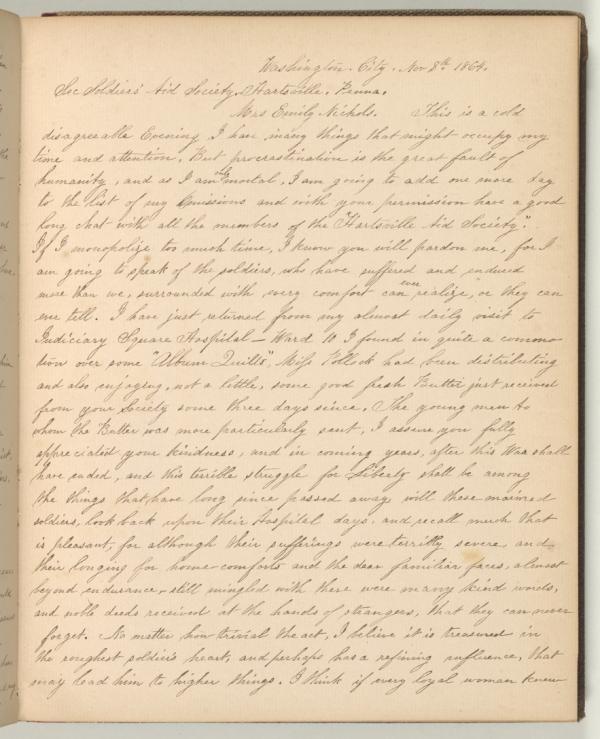 Washington. City. Nov 8th 1864.
Sec Soldiers' Aid Society, Hartsville, Penna.
Mrs Emily Nichols. This is a cold
disagreeable Evening, I have many things that might occupy my
time and attention. But procrastination is the great fault of
humanity, and as I am only mortal, I am going to add one more day
to the list of my Omissions and with your permission have a good
long chat with all the members of the "Hartsville Aid Society".
If I monopolize too much time, I know you will pardon me, for I
am going to speak of the soldiers, who have suffered and endured
more than we, surrounded with every comfort can ever realize, or they can
ever tell. I have just returned from my almost daily visit to
Judiciary Square Hospital — Ward 10 I found in quite a commo-
tion over some "Album Quilts", Miss Pollock had been distributing
and also enjoying, not a little, some good fresh Butter just received
from your Society some three days since, The young men to
whom the Butter was more particularly sent, I assure you fully
appreciated your kindness, and in coming years, after this War shall
have ended, and this terrible struggle for Liberty shall be among
the things that have long since passed away will these maimed
soldiers, look back upon their Hospital days, and recall much that
is pleasant, for although their sufferings were terribly severe, and
their longing for home comforts and the dear familiar faces, almost
beyond endurance, still mingled with there were many kind words,
and noble deeds received at the hands of strangers, that they can never
forget. No matter how trivial the act, I believe it is treasured in
the roughest soldier's heart, and perhaps has a refining influence, that
may lead him to higher things. I think if every loyal woman knew